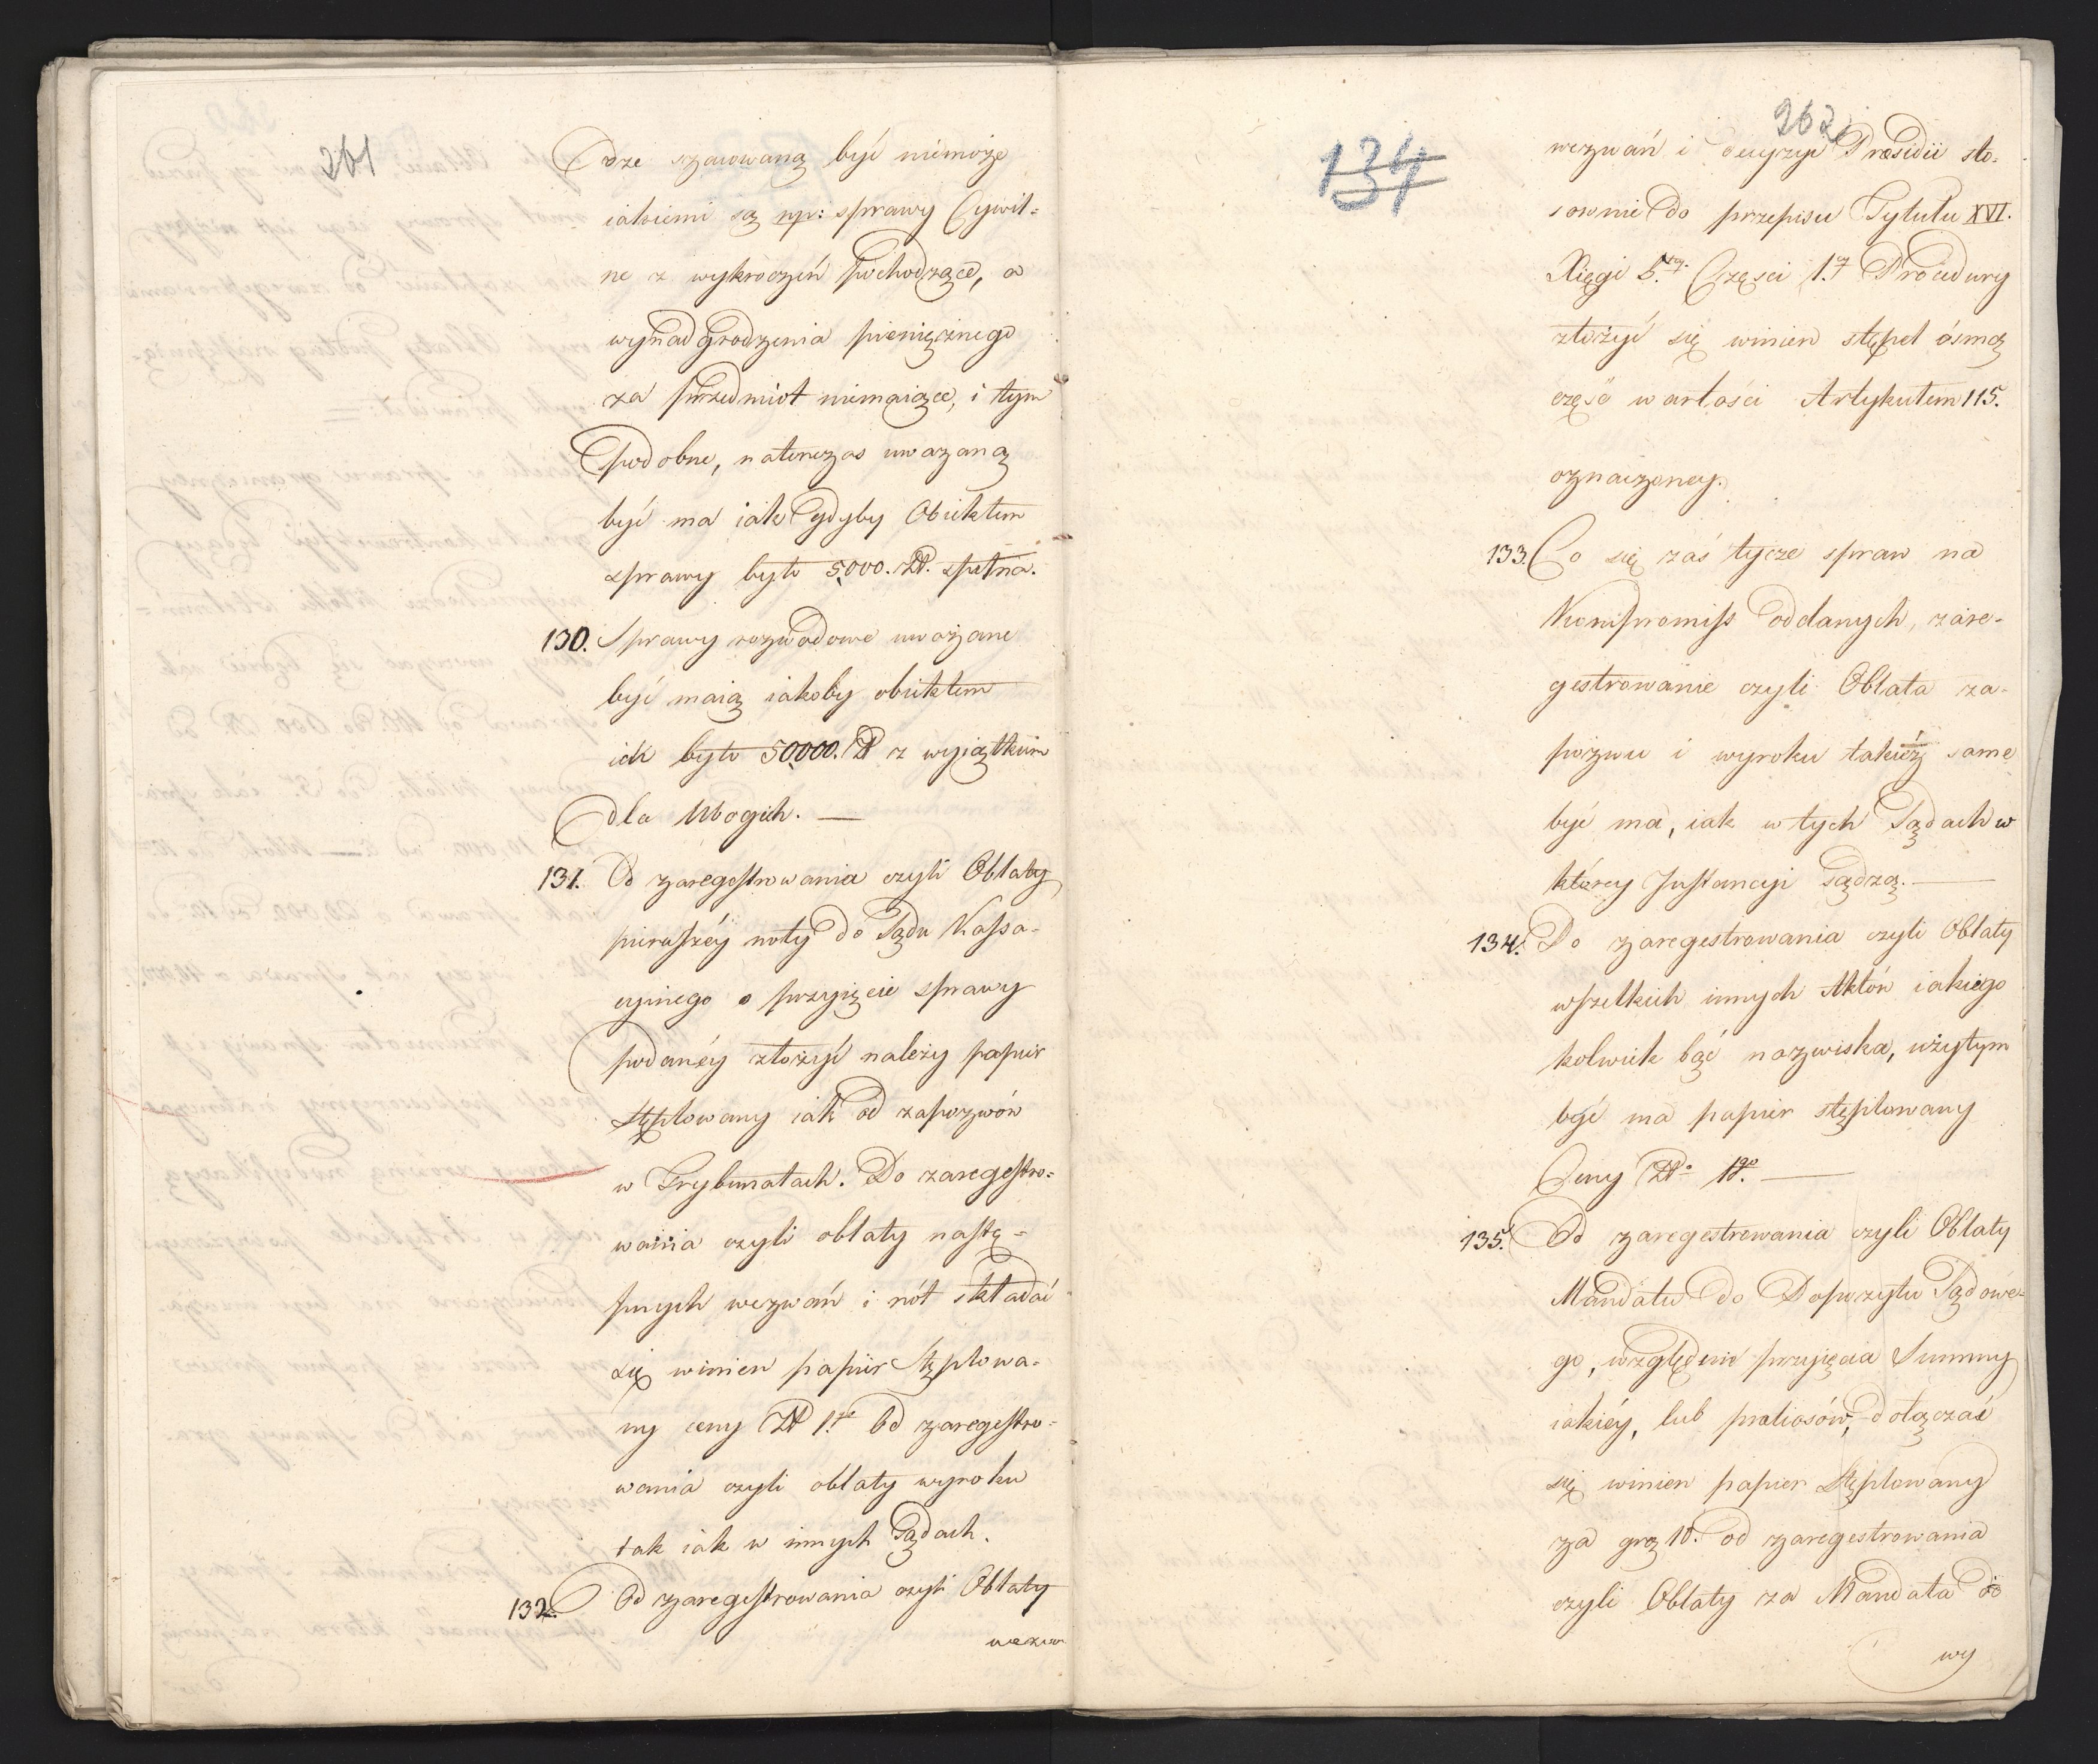 261
dze szacowaną być niemoże
iakiemi są np: sprawy Cywil=
ne z wykroczeń pochodzące, a
wynadgrodzenia pieniężnego
za przedmiot niemaiące, i tym
podobne, natenczas uwazaną
być ma iak gdyby Obiektem
sprawy było 5000. Zł. spełna.
130. Sprawy rozwodowe uważane
być maią iakoby obiektem
ich było 50,000. Zł z wyiątkiem
dla Ubogich. —
131. Od zaregestrowania czyli Oblaty
pierwszéy noty do Sądu Kassa-
cyinego o przyięcie sprawy
podanéy złożyć należy papier
stęplowany iak od zapozwów
w Trybunałach. Do zaregestro=
wania czyli oblaty nastę=
pnych wezwań i nót składać
się winien papier stęplowa-
ny ceny Zł 1. Od zaregestro=
wania czyli oblaty wyroku
tak iak w innych Sądach.
132. Od zaregestrowania czyli Oblaty
wezw
134
262
wezwań i decyzyi Præsidii sto-
sownie do przepisu Tytułu XVI.
Xięgi 5.tey Częsci 1.ey Procedury
złożyć się winien stępel ósmą
część wartości Artykułem 115.
oznaczoney.
133. Co się zaś tycze spraw na
Kompromiss oddanych, zare-
gestrowanie czyli Oblata za-
pozwu i wyroku takież same
być ma, iak w tych Sądach w
któréy Instancyi sądzą. —
134. Do zaregestrowania czyli Oblaty
wszelkich innych Aktów iakiego
kolwiek bąć nazwiska, użytym
być ma papier stęplowany
Ceny Zło 1go. —
135. Od zaregestrowania czyli Oblaty
Mandatu do Depozytu Sądowe-
go, względem przyięcia Summy
iakiéy, lub pretiosów, dołączać
się winien papier stęplowany
za gro 10. od zaregestrowania
czyli Oblaty za Mandata do
wy